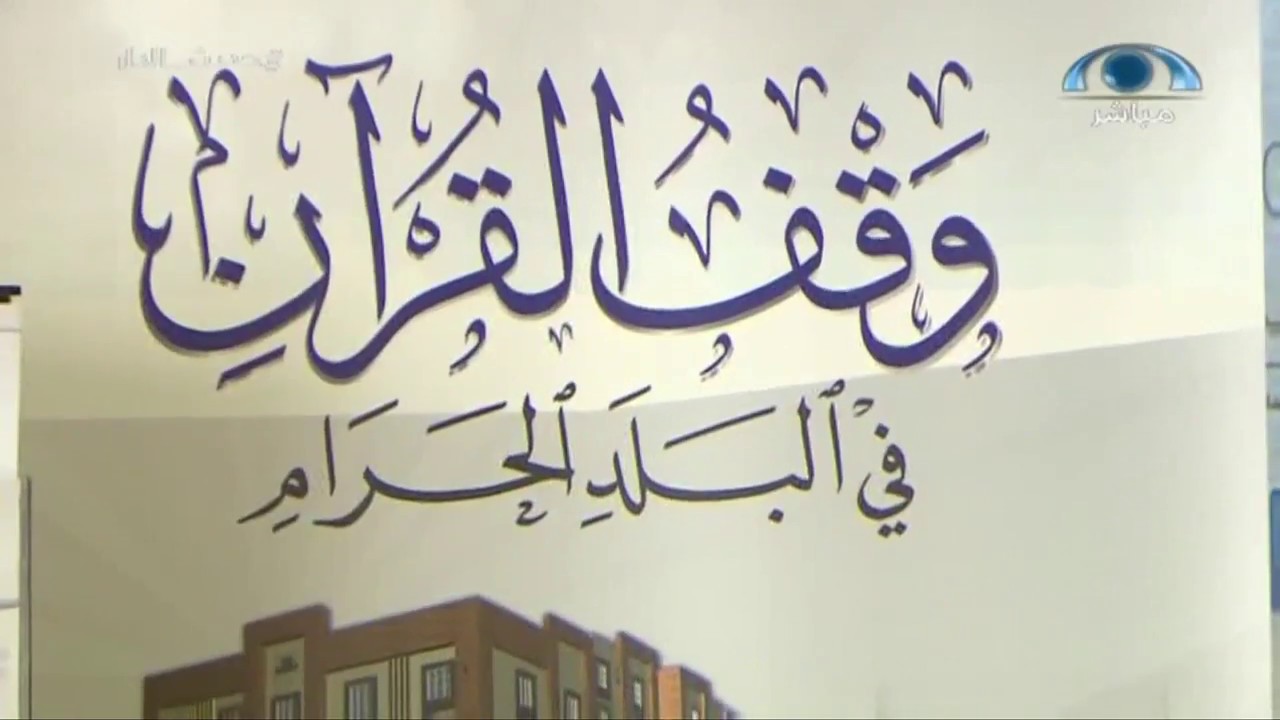 مباشر
وَقْفُ الْقُرْآنِ
فِي ٱلبَلَدِ ٱلحَرَامِ